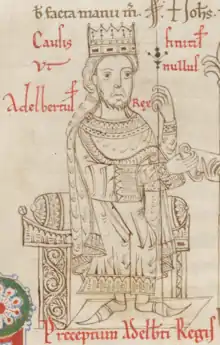 facta manu m. ff. † Johs.
Causis finitis
Ut nullus
Adelbertus Rex
Preceptum Adelbti Regis